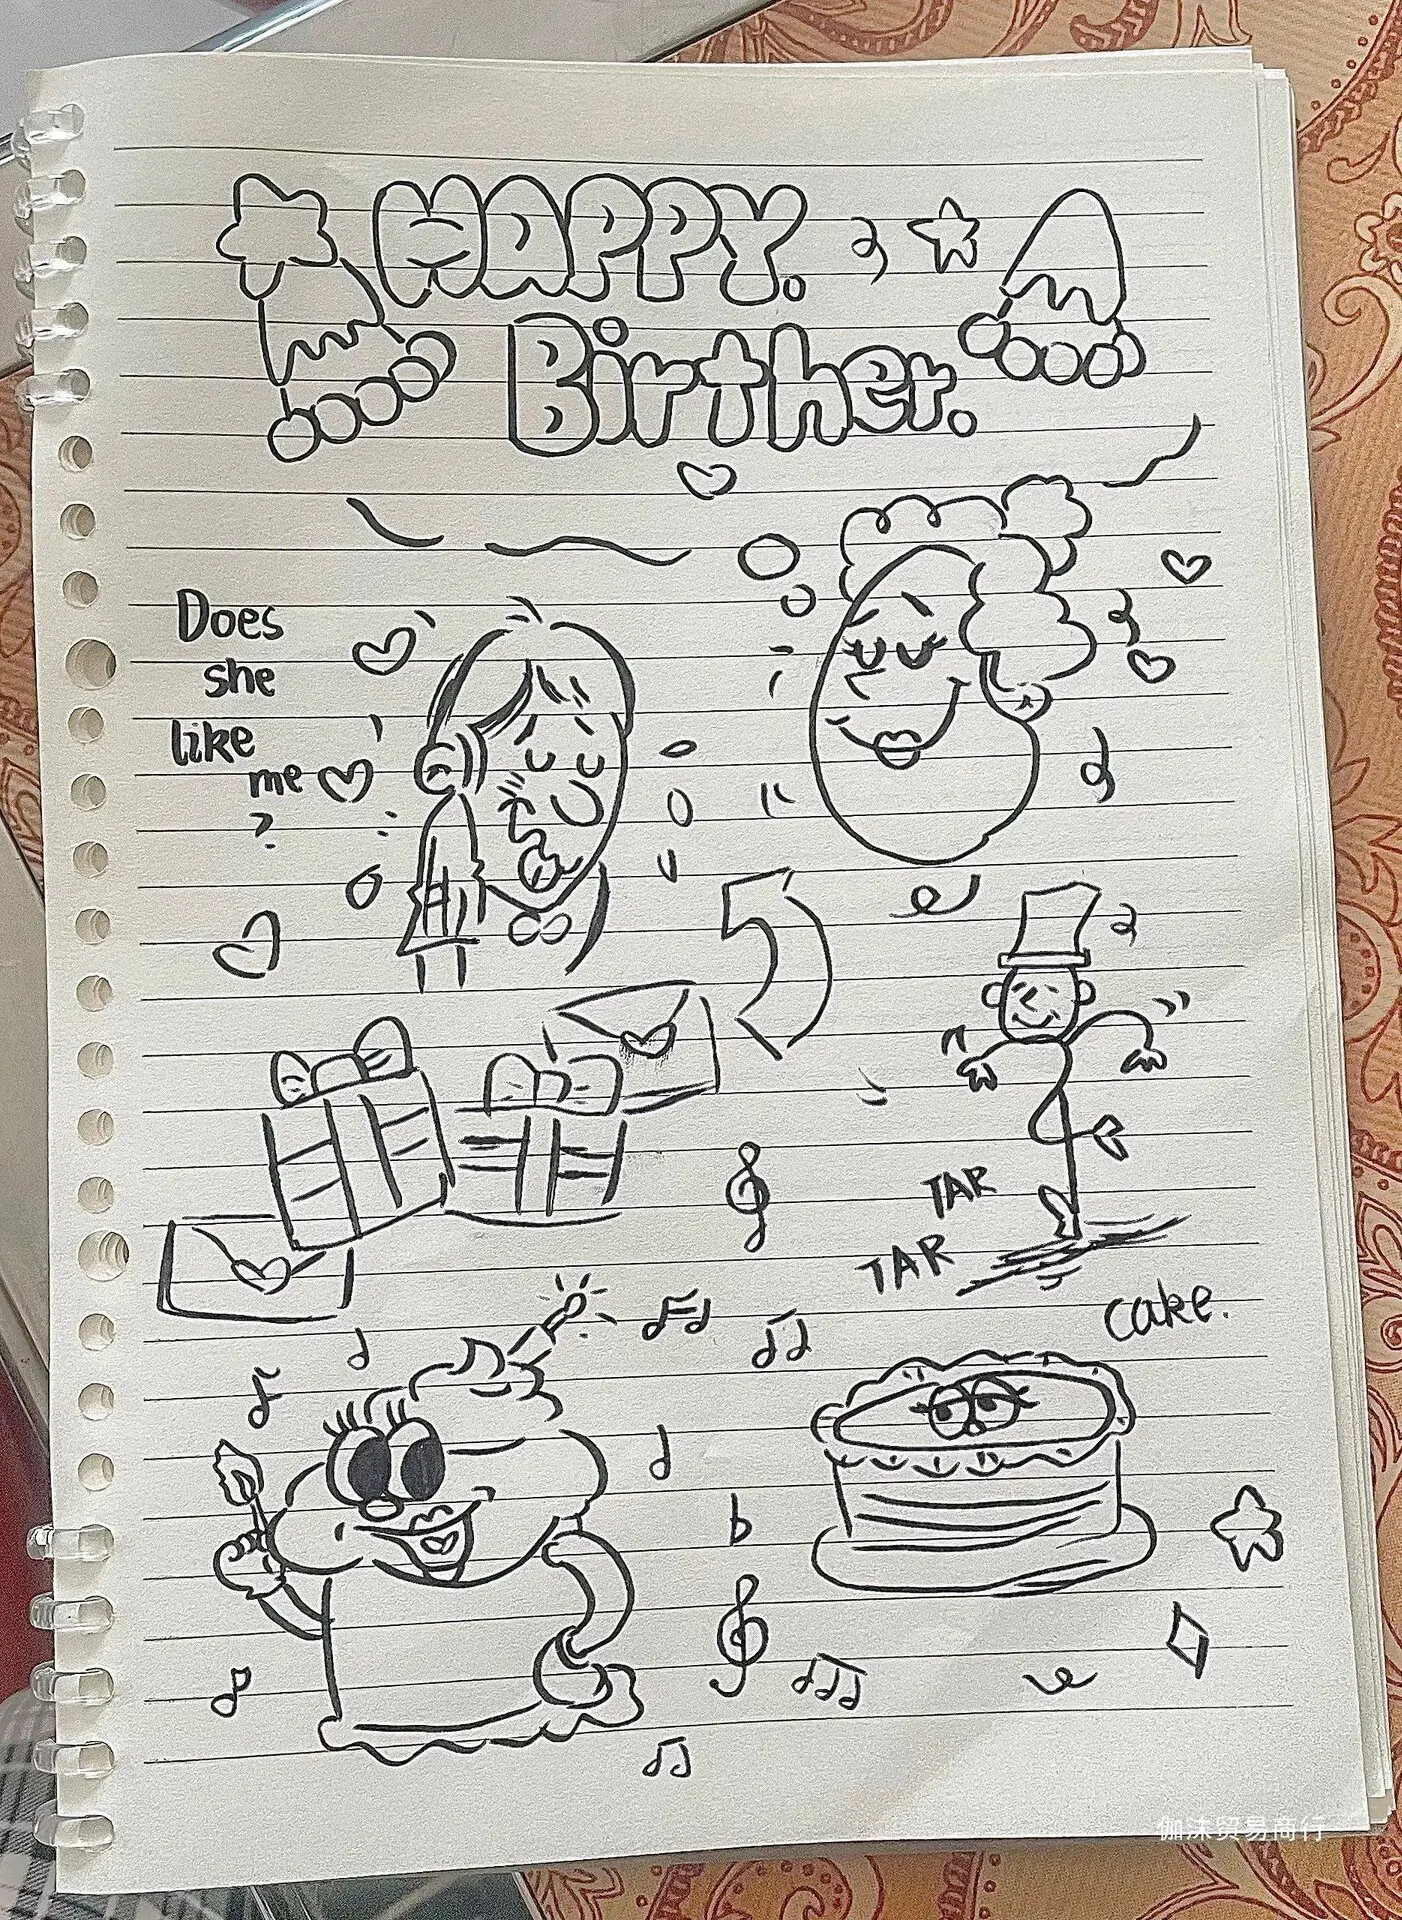 HAPPY.
Birther.
Does
she
like
me
?
TAR
TAR
cake.
伽沫贸易商行